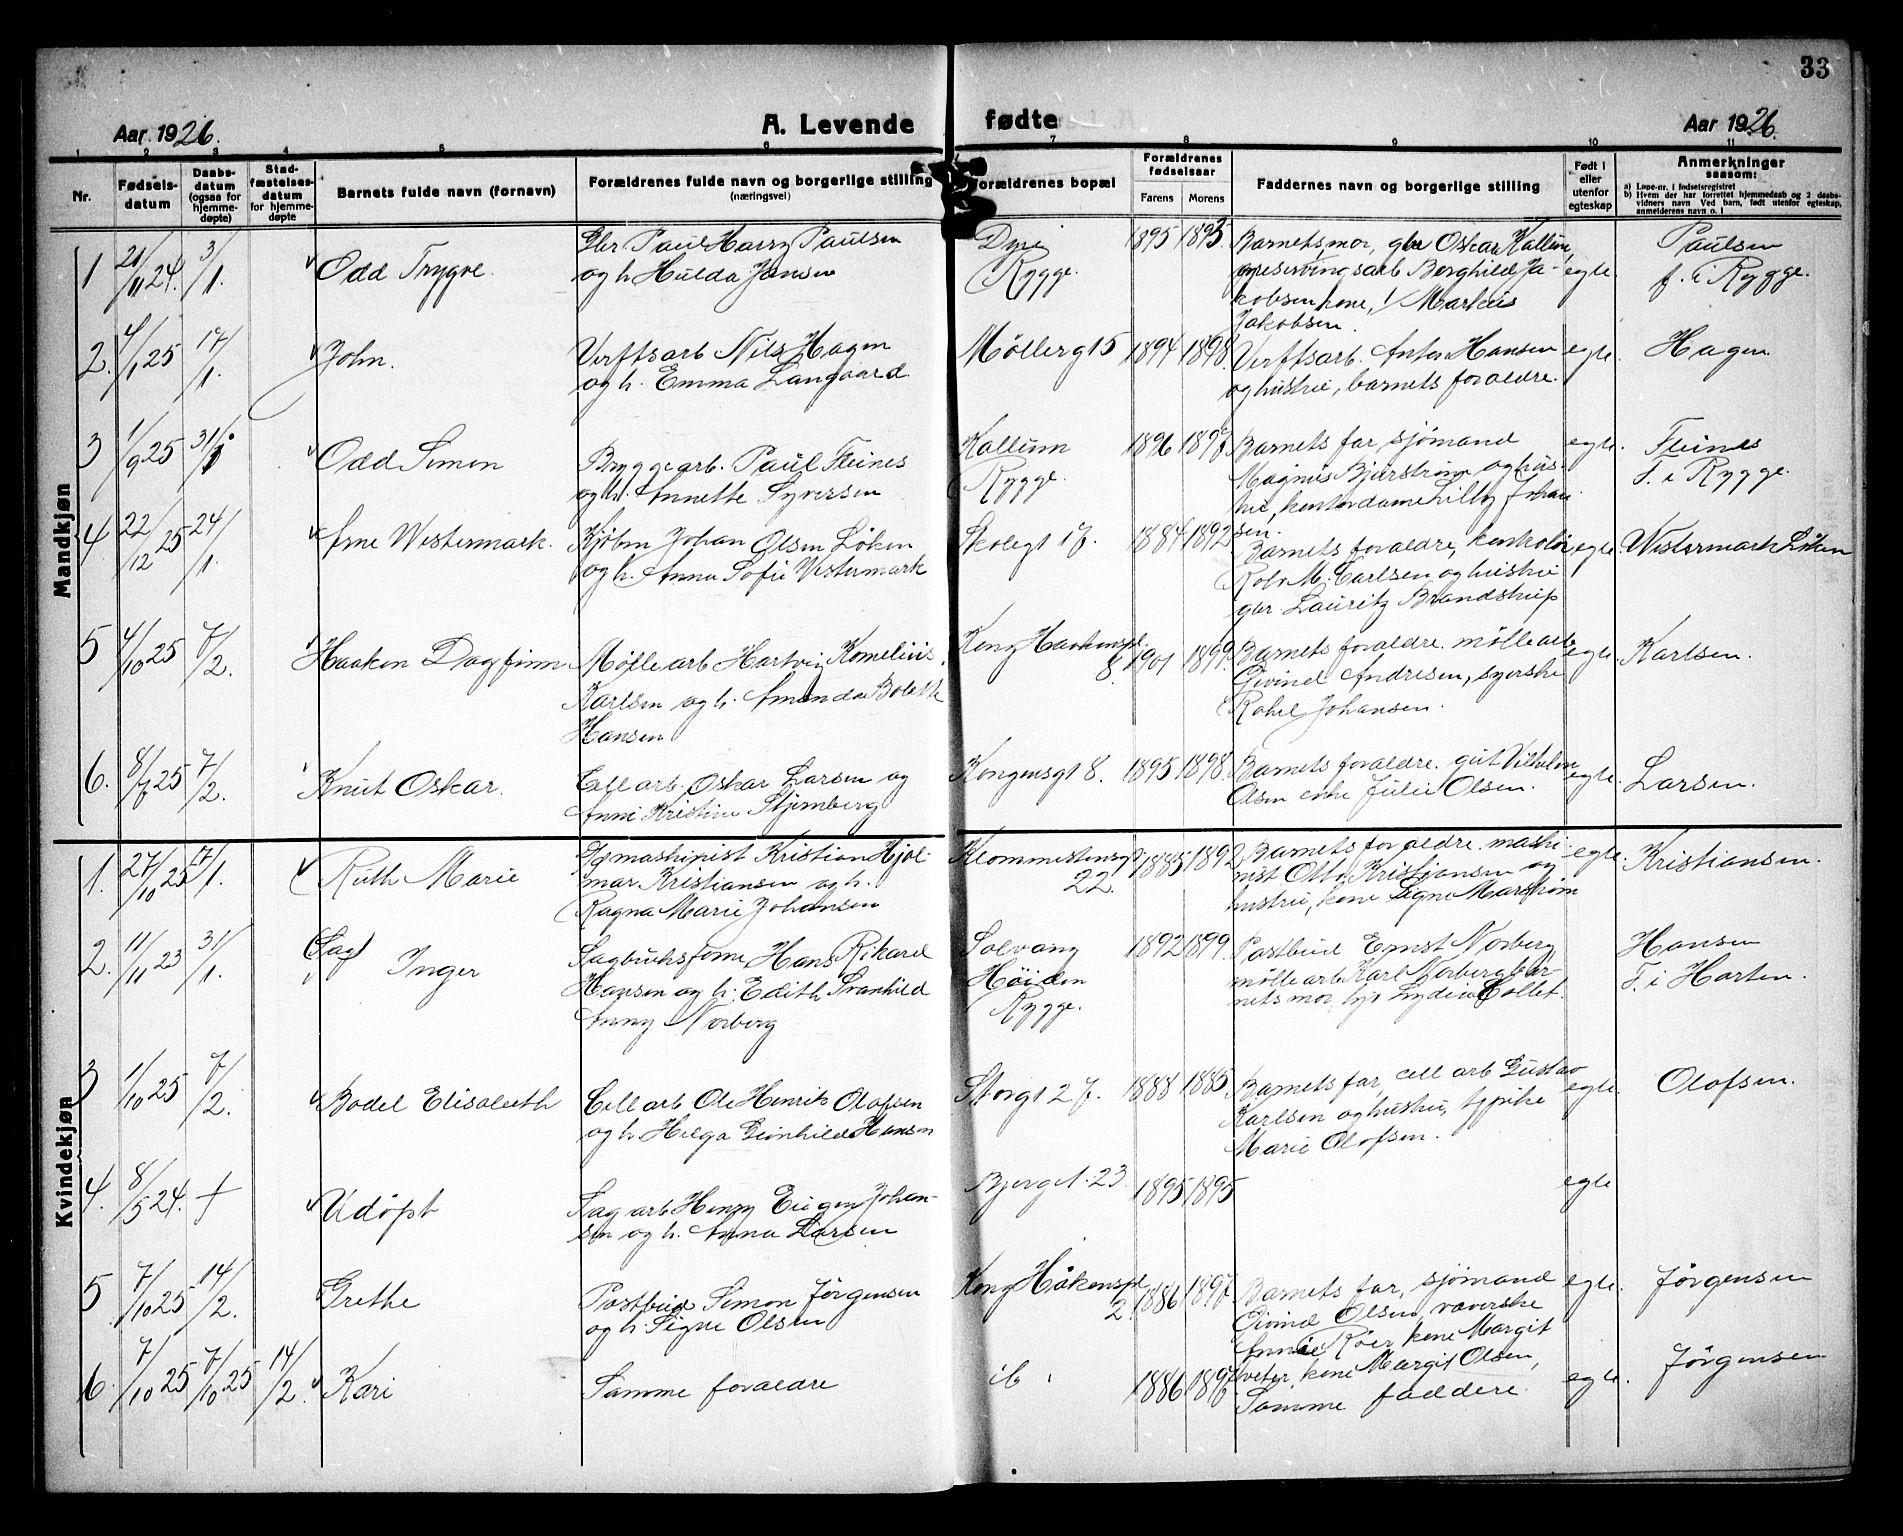 33
Aar 1926.
A. Levende fødte
Aar 1926.
1 2 3 4 5 6 7 8 9 10 11
Nr.
Fødsels-
datum
Daabs-
datum
(ogsaa for
hjemme-
døpte)
Stad-
fæstelses-
datum
for hjemme-
døpte
Barnets fulde navn (fornavn)
Forældrenes fulde navn og borgerlige stilling
(næringsvei)
Forældrenes bopæl
Forældrenes
fødselsaar
Farens Morens
Faddernes navn og borgerlige stilling
Født i
eller
utenfor
egteskap
Anmerkninger
saasom:
a) Løpe-nr. i fødselsregistret
b) Hvem der har forrettet hjemmedaab og 2 daabs-
vidners navn Ved barn, født utenfor egteskap,
anmelderens navn o. l
Mandkjøn
1 21/11 24. 3/1. Odd Trygve.
Gbr Paul Harry Paulsen
og h. Hulda Jansen
Dyre
Rygge.
1895 1893
Barnets mor, gbr Oskar Kallum,
preserveringsarb Borghild Ja-
kobsen kone, Markus
Jakobsen.
egte
Paulsen
f. i Rygge.
2. 4/1 25 17/1. John.
Verftsarb Nils Hagen
og h. Emma Langaard
Møllergt 5
1894 1898.
Verftsarb. Anton Hansen
og hustru, barnets foraldre.
egte.
Hagen.
3 1/9 25 31/1 Odd Simon
Bryggearb. Paul Fleines
og h. Annette Syversen
Kallum
Rygge.
1896 1897
Barnets far, sjömand
Magnus Bjurstrøm og hus-
tru, kontordame Lilly Johan
sen.
egte.
Fleines
F. i Rygge.
4 22/12 25 24/1. Arne Westermark.
Kjøbm Johan Olsen Løken
og h. Anna Sofie Westermark
Skolegt 17.
1884 1892
Barnets foraldre,
Robr M. Carlsen og hustru
gbr Lauritz Brandstrup
egte.
Westermark Løken
5 4/10 25 7/2. Haakon Dagfinn
Møllearb Hartvig Kornelius
Karlsen og h. Amanda Bolette
Hansen
Kong Haakonspl.
8.
1901 1899.
Barnets foraldre. møllearb
Eivind Andresen, syerske
Rakel Johansen.
egte.
Karlsen.
6. 8/7 25 7/2. Knut Oskar.
Cellarb. Oskar Larsen og
Anni Kristine Stjernberg
Kongensgt 8.
1895 1898.
Barnets foraldre. gut Vilhelm
Olsen enke Julie Olsen.
egte.
Larsen.
Kvindekjøn
1. 27/10 25 17/1. Ruth Marie
Sagmaskinist Kristian Hjal-
mar Kristiansen og h.
Ragna Marie Johansen
22.
1885 1892
Barnets foraldre. maski-
nist Otto Kristiansen og
hustru, kone Signe Marstrøm
egte.
Kristiansen.
2. 11/11 23 31/1. (Sag) Inger
Sagbruksform Hans Rikard
Hansen og h. Edith Svanhild
Anny Norberg
Solvang
Høiden
Rygge.
1892 1899.
Postbud Ernst Norberg
møllearb Karl Norberg bar-
nets mor, tjp Lydia Collet.
Hansen
F. i Horten.
3 1/10 25 7/2. Bodel Elisabeth
Cellarb Ole Henrik Olafsen
og h. Helga Gunhild Hansen
Storgt 27.
1888 1885
Barnets far, cell arb Gustav
Karlsen og hustru, tjpike
Marie Olofsen.
egte.
Olafsen.
4. 8/5 24. + Udøpt
Sagarb Henry Eugen Johan-
sen og h. Anna Larsen
Bjergt. 23
1895 1895
egte
5 7/10 25 14/2. Grethe
Postbud Simon Jørgensen
og h. Signe Olsen
Kong Håkonspl
2.
1886 1897.
Barnets far, sjömand
Eivind Olsen, væverske
Annie Röer, kone Margit
kone Margit Olsen,
egte.
Jørgensen
6. 7/10 25 7/10 25 14/2. Kari
Samme foraldre
ib.
1886 1897
Samme faddere.
egte.
Jørgensen